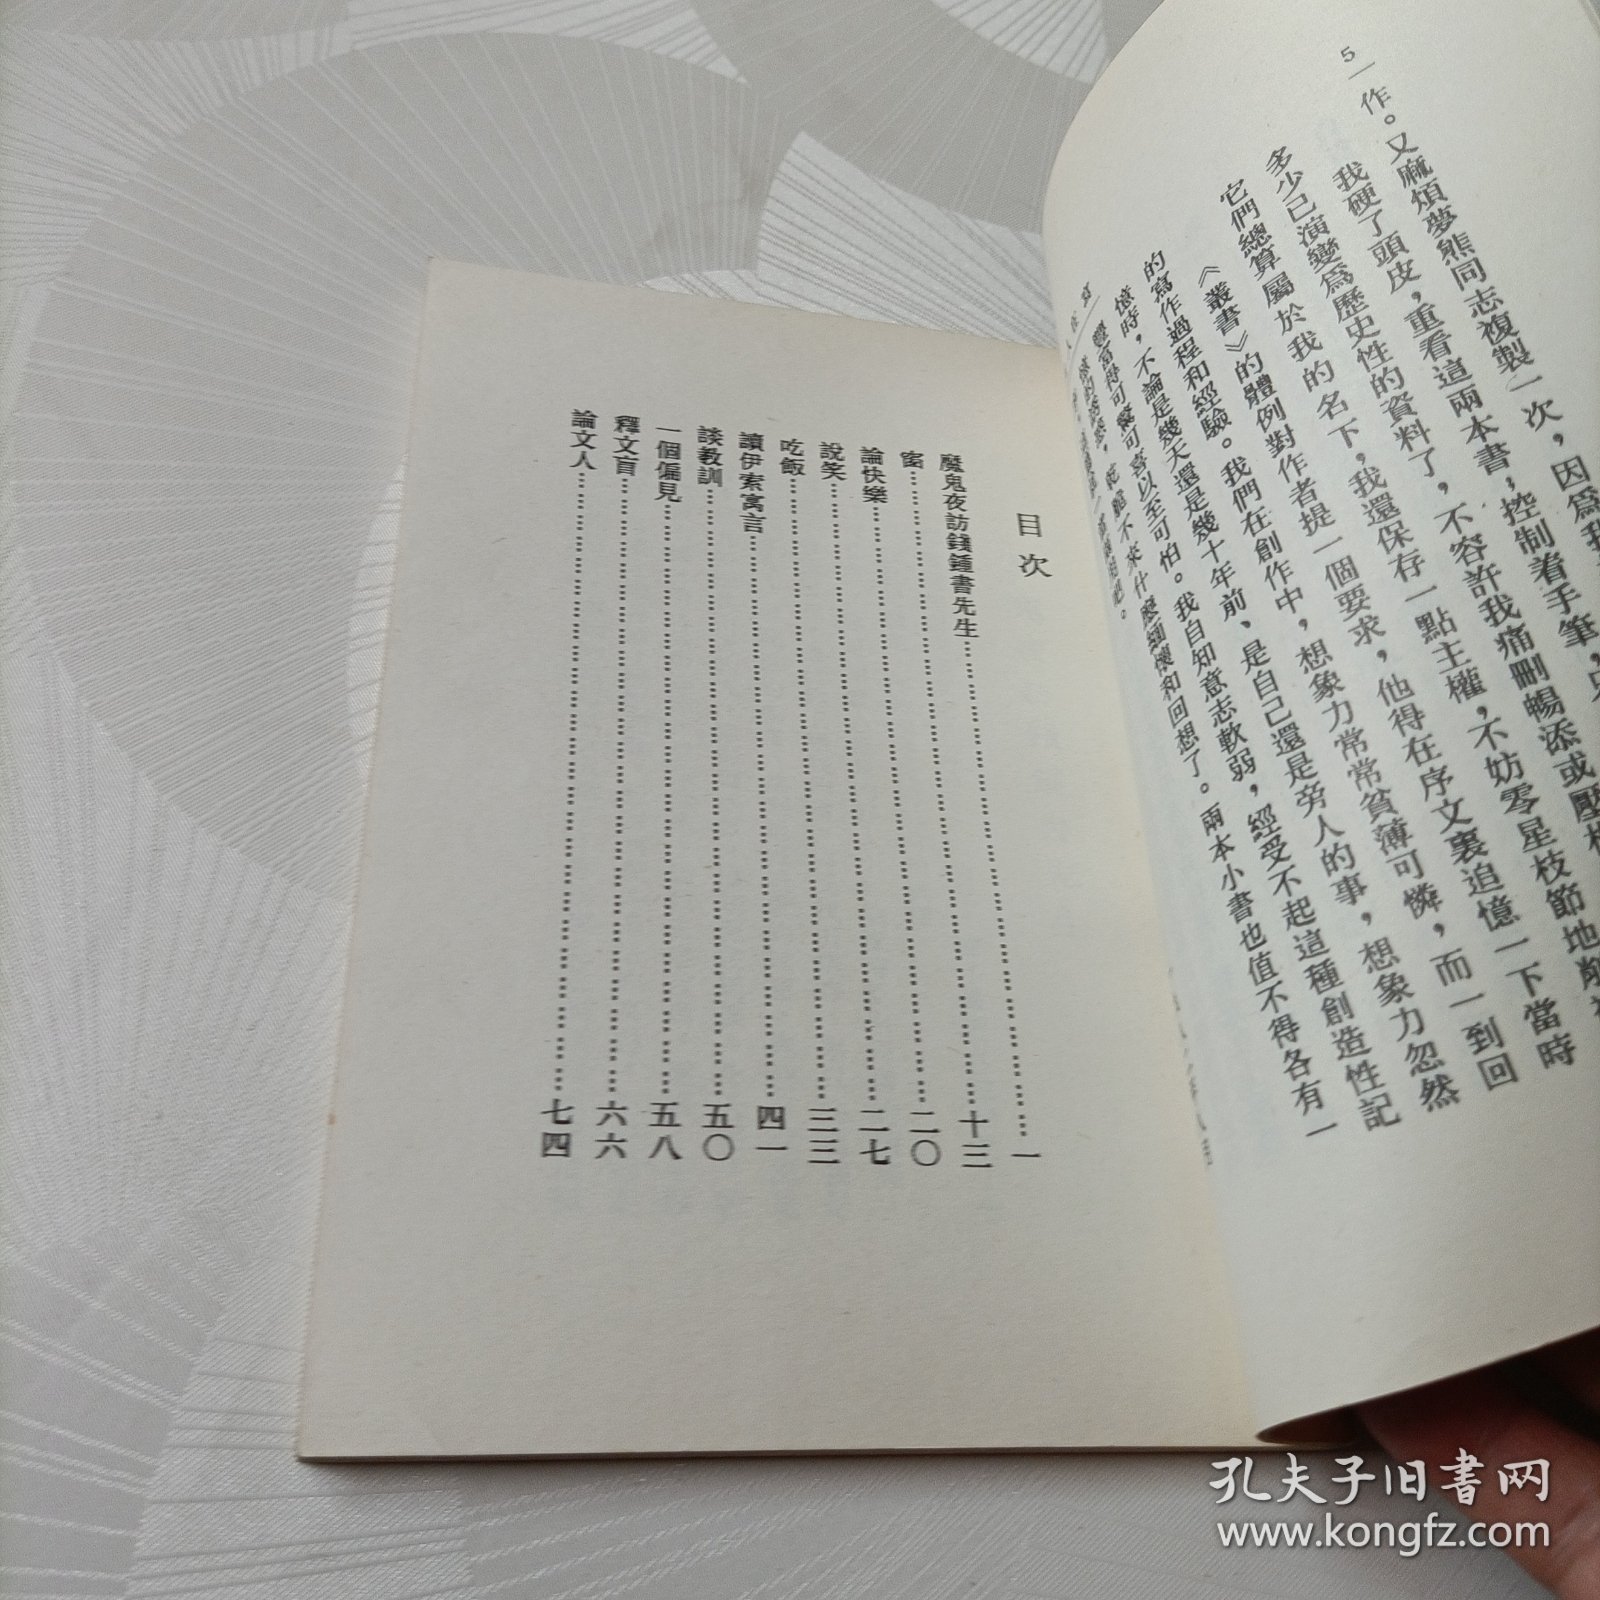 5
作。又麻煩夢熊同志複製一次，因爲我
我硬了頭皮，重看這兩本書；控制着手筆，只
多少已演變爲歷史性的資料了，不容許我痛刪暢添或壓根
它們總算屬於我的名下，我還保存一點主權，不妨零星枝節地削補
《叢書》的體例對作者提一個要求，他得在序文裏追憶一下當時
的寫作過程和經驗。我們在創作中，想象力常常貧薄可憐，而一到回
憶時，不論是幾天還是幾十年前、是自己還是旁人的事，想象力忽然
豐富得可驚可喜以至可怕。我自知意志軟弱，經受不起這種創造性記
不來什麼緬懷和回想了。兩本小書也值不得各有一
目次
一
魔鬼夜訪錢鍾書先生……十三
窗……二〇
論快樂……二七
說笑……三三
吃飯……四一
讀伊索寓言
談教訓……五〇
一個偏見……五八
釋文盲……六六
論文人……七四
孔夫子旧书网
www.kongfz.com